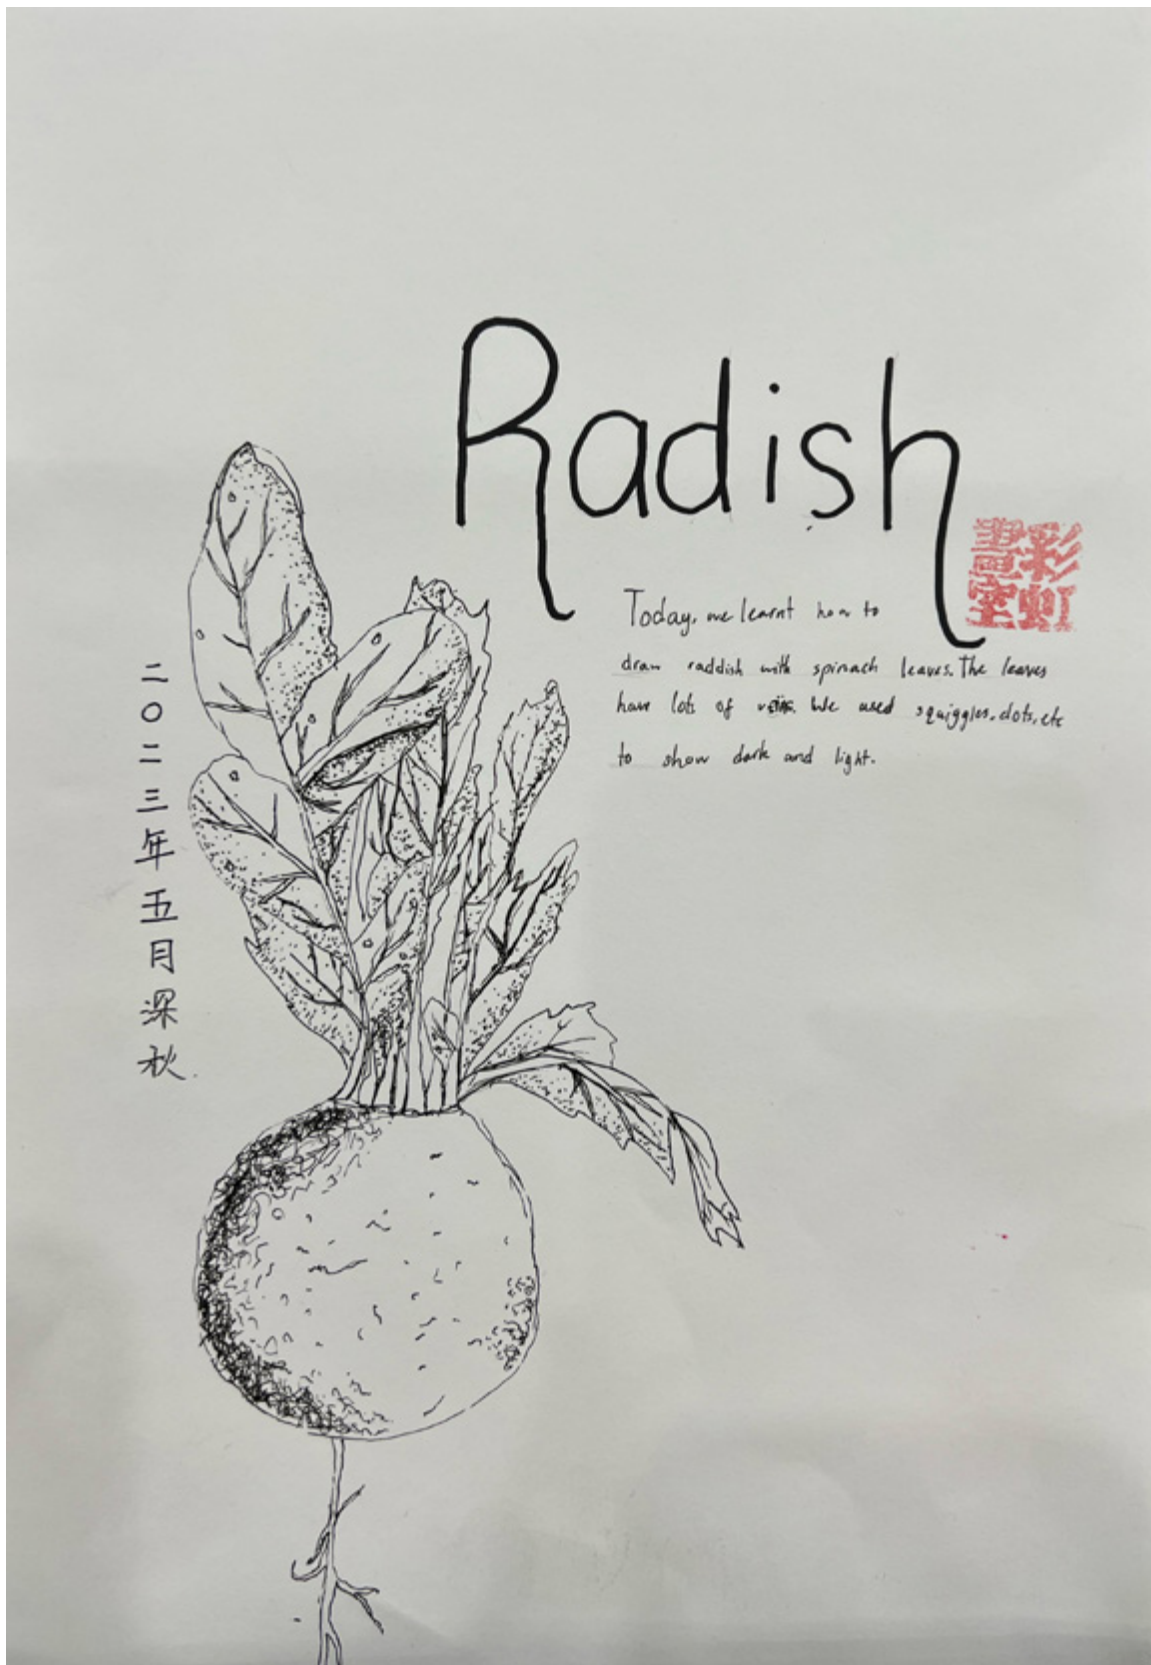 Radish
彩虹
畫室
Today, we learnt how to
draw raddish with spinach leaves. The leaves
have lots of We used squiggles, dots, etc
to show dark and light.
二〇二三年五月深秋